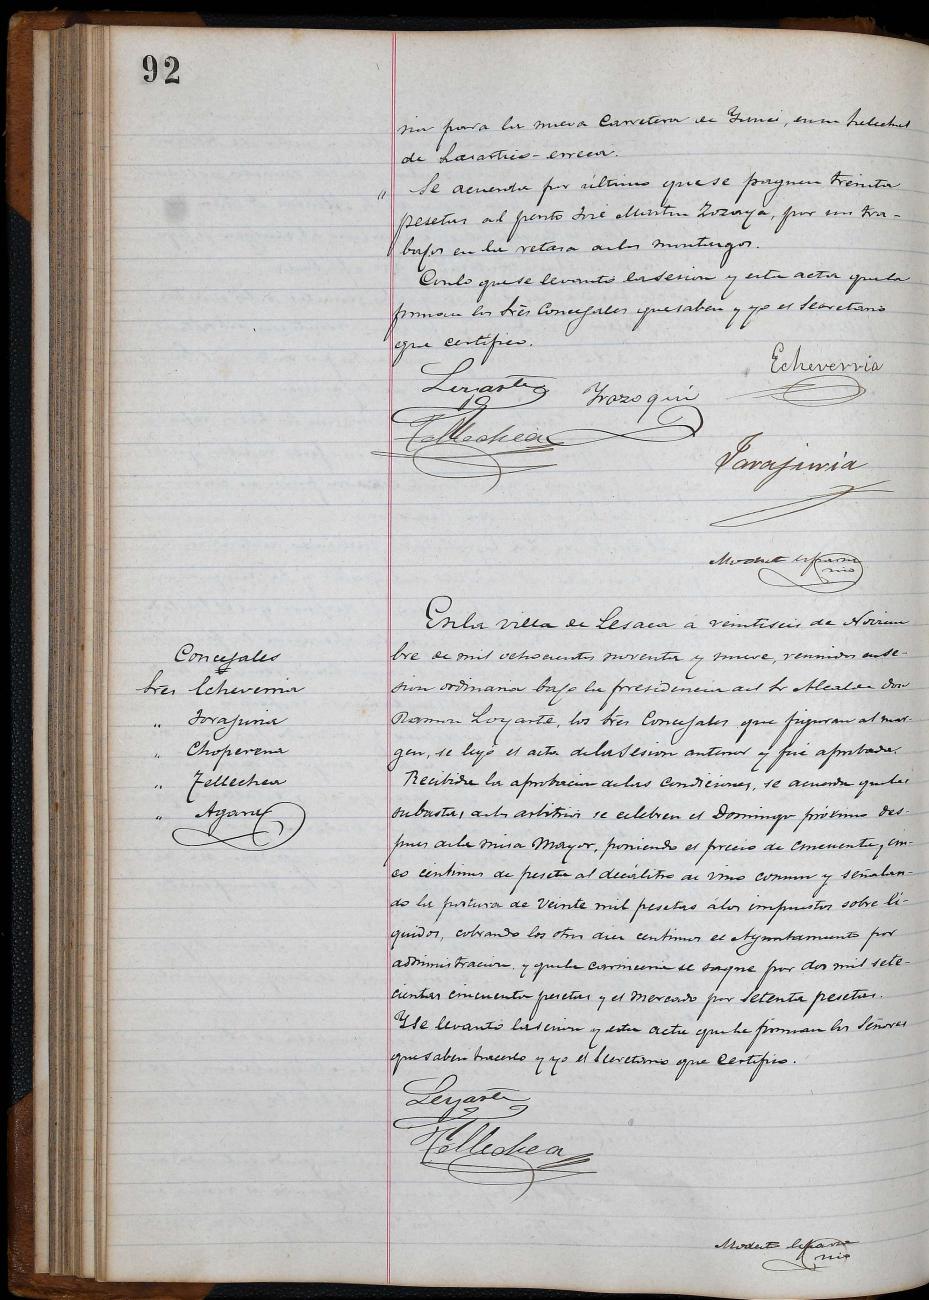 92
ria para la nueva Carretera de Yanci, en su helechal
de Lasartico-erreca.
" Se acuerda por último que se paguen treinta
pesetas al perito José Martin Zozaya, por sus tra-
bajos en la retasa de los montazgos.
Con lo que se levantó la sesion y esta acta que la
firman los Sres Concejales que saben y yo el Secretario
que certifico.
Echeverria
Loyarte
Yrazoqui
Tellechea
Tarajuria
Modesto
En la villa de Lesaca á veintiseis de Noviem
bre de mil ochocientos noventa y nueve, reunidos en se-
sion ordinaria bajo la presidencia del Sr Alcalde don
Ramon Loyarte, los Sres Concejales que figuran al mar-
gen, se leyó el acta de la Sesion anterior y fué aprobada.
Concejales
Sres Echeverria
" Tarajuria
" Choperena
" Tellechea
" Agara
Recibida la aprobacion de las Condiciones, se acuerda que las
subastas de los arbitrios se celebren el Domingo próximo des-
pues de la misa Mayor, poniendo el precio de cincuenta y cin-
co centimos de peseta al decálitro de vino comun y señalan-
do la postura de veinte mil pesetas á los impuestos sobre lí-
quidos, cobrando los otros diez centimos el Ayuntamiento por
administracion, y que la carniceria se saque por dos mil sete-
cientas cincuenta pesetas y el Mercado por setenta pesetas.
Y se levantó la sesion y esta acta que la firman los Señores
que saben hacerlo y yo el Secretario que certifico.
Loyarte
Tellechea
Modesto